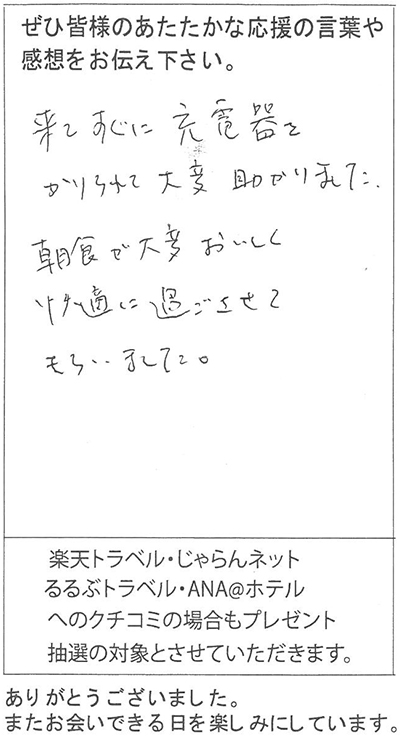 ぜひ皆様のあたたかな応援の言葉や
感想をお伝え下さい。
来てすぐに充電器を
かりられて大変助かりました.
朝食が大変おいしく
快適に過ごさせて
もらいました。
楽天トラベル・じゃらんネット
るるぶトラベル・ANA@ホテル
へのクチコミの場合もプレゼント
抽選の対象とさせていただきます。
ありがとうございました。
またお会いできる日を楽しみにしています。